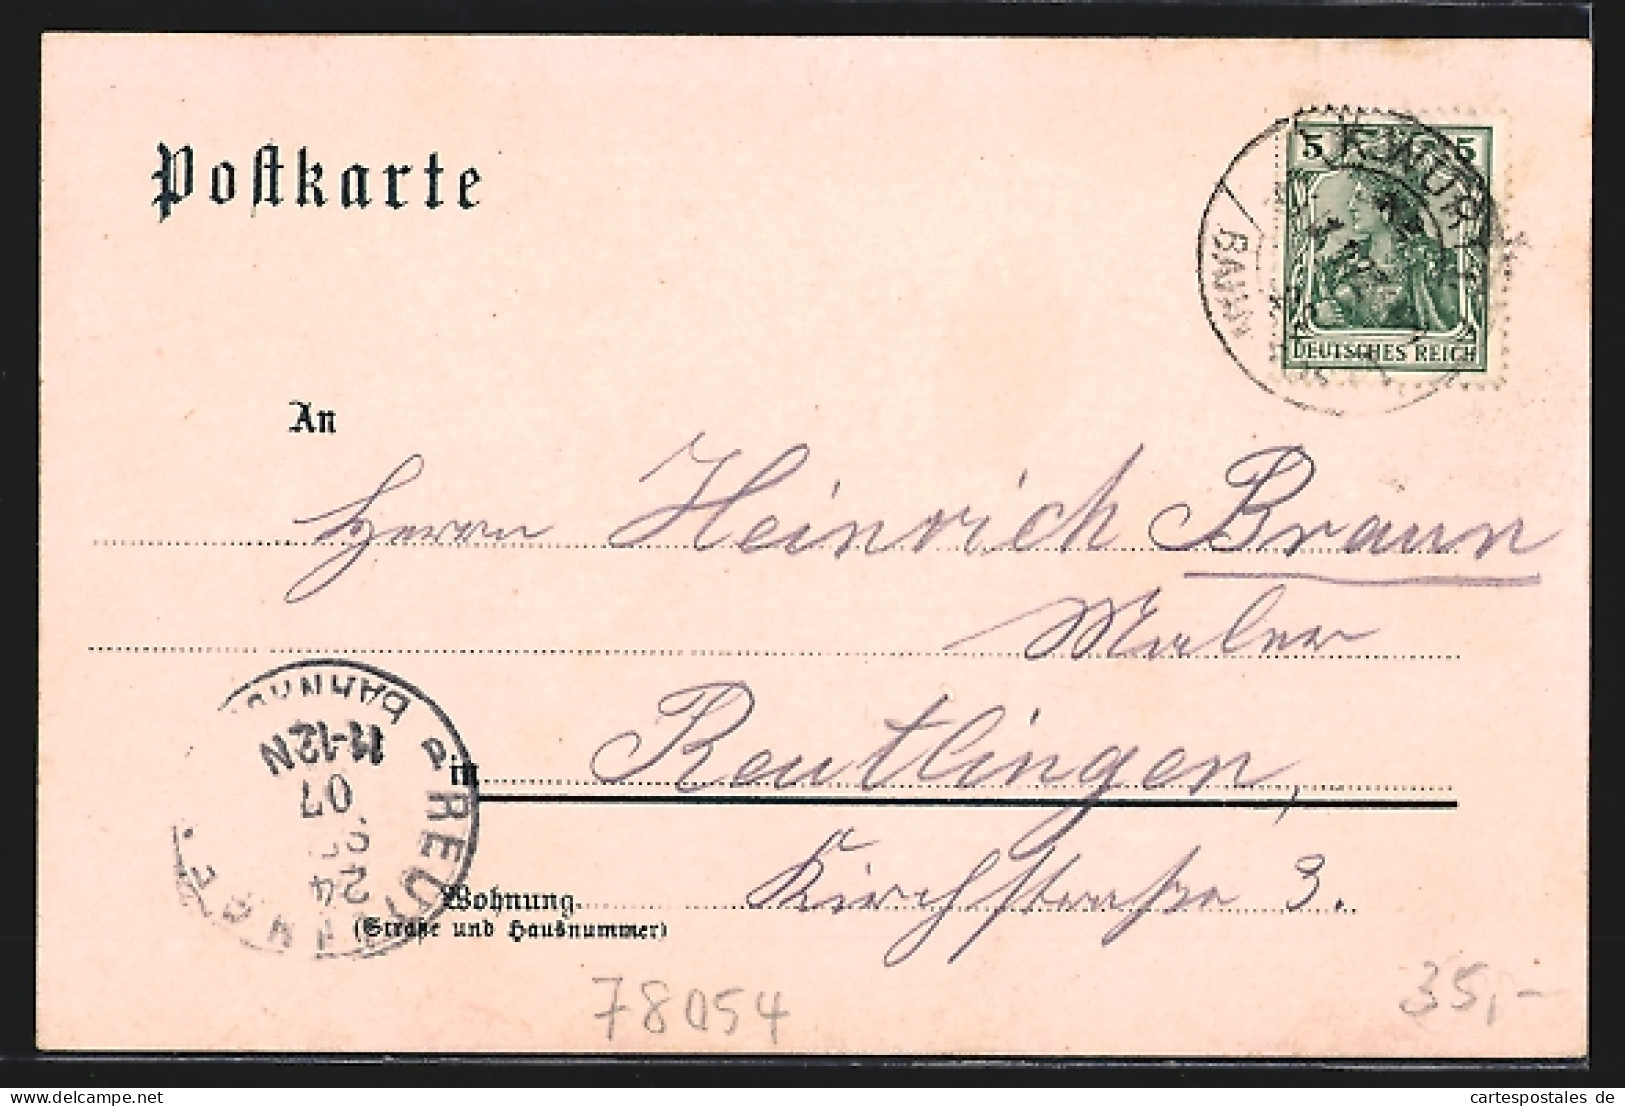 Postkarte
5 5
K. WÜRTT.
BAHN
DEUTSCHES REICH
An
Herrn Heinrich Braun
Maler
in Reutlingen,
Wohnung Kirchstraße 3.
(Straße und Hausnummer)
BAHNHOF
11-12N
07
24
REUTLINGEN
78054
35,-
www.cartespostales.de